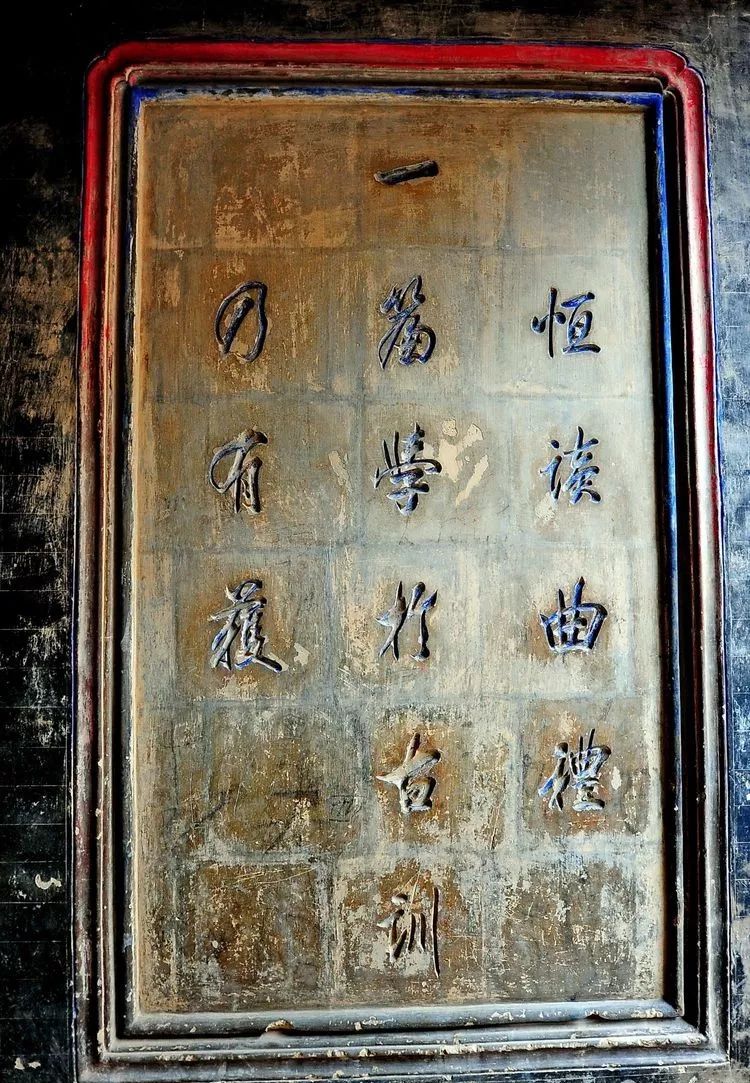 恒谈曲禮
一篇學於古訓
乃有獲